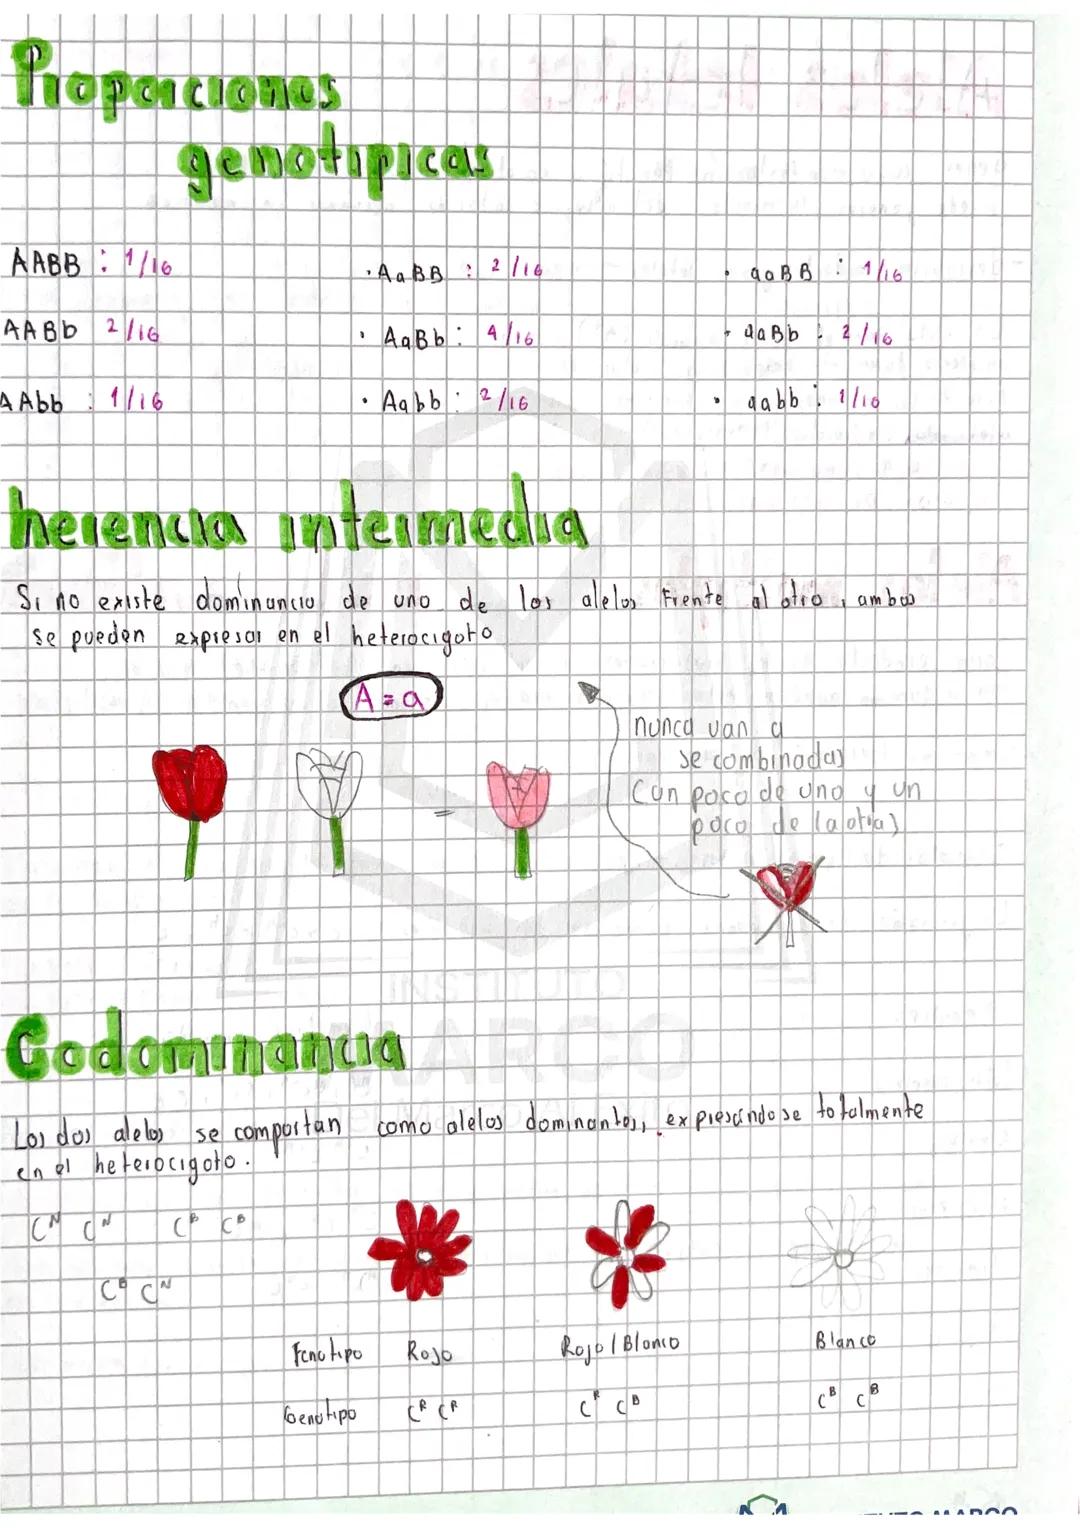 Proporciones
genotipicas
AABB : 1/16
· AaBB : 2/16
· aaBB : 1/16
AABb 2/16
· AaBb : 4/16
· aaBb : 2/16
AAbb : 1/16
· Aabb : 2/16
· aabb : 1/16
herencia intermedia
Si no existe dominancia de uno de los alelos frente al otro, ambos
se pueden expresar en el heterocigoto
A = a
nunca van a
se combinadas
(un poco de uno y un
poco de la otra)
=
INSTITUTO
MARCO
Codominancia
Los dos alelos se comportan como alelos dominantes, expresándose totalmente
en el heterocigoto.
Cᴺ Cᴺ Cᴮ Cᴮ
Cᴮ Cᴺ
Fenotipo Rojo Rojo / Blanco Blanco
Genotipo Cᴿ Cᴿ Cᴿ Cᴮ Cᴮ Cᴮ